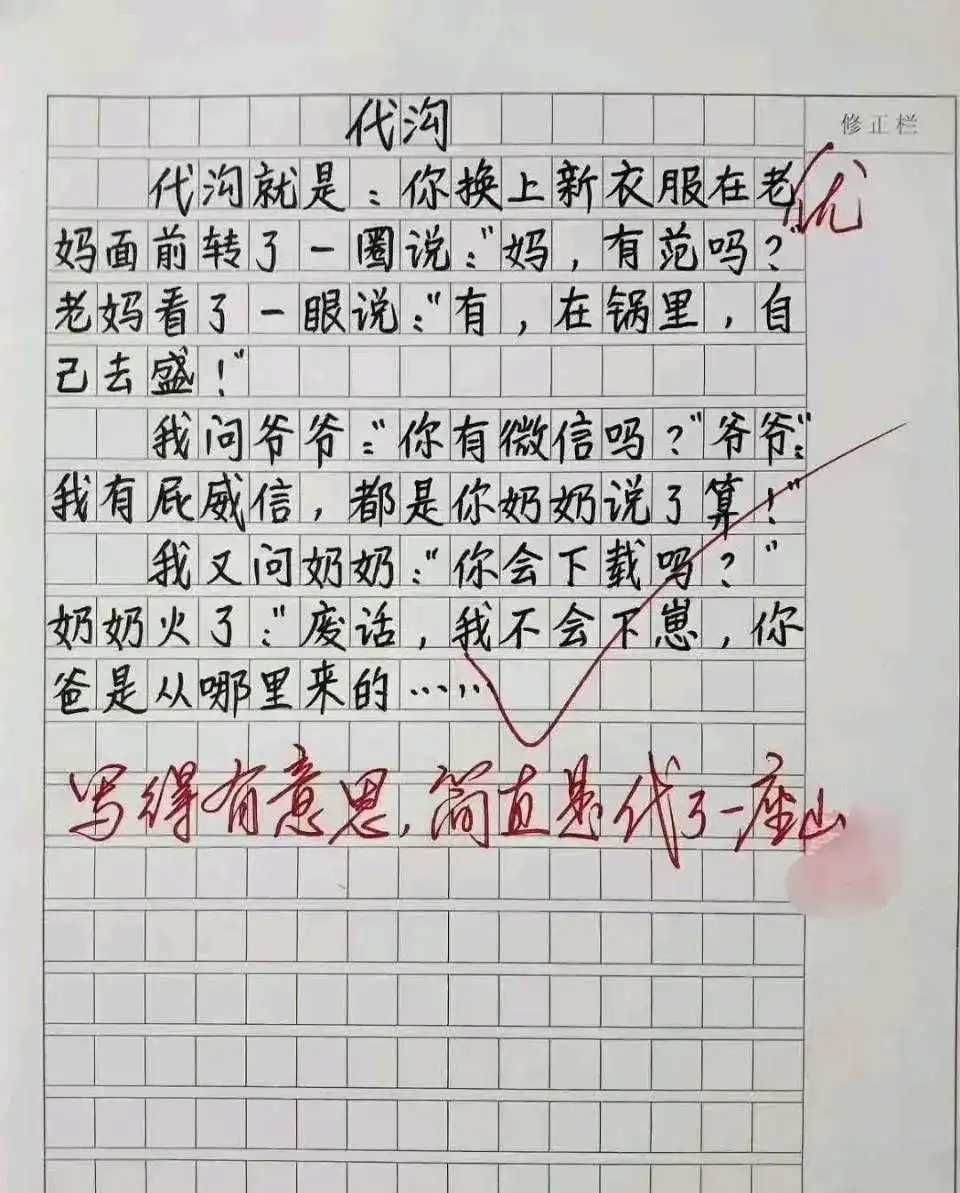 代沟
修正栏
代沟就是：你换上新衣服在老
优
妈面前转了一圈说："妈，有范吗？
老妈看了一眼说："有，在锅里，自
己去盛！"
我问爷爷："你有微信吗？"爷爷："
我有屁威信，都是你奶奶说了算！"
我又问奶奶："你会下载吗？"
奶奶火了："废话，我不会下崽，你
爸是从哪里来的……
写得有意思，简直是代了一座山